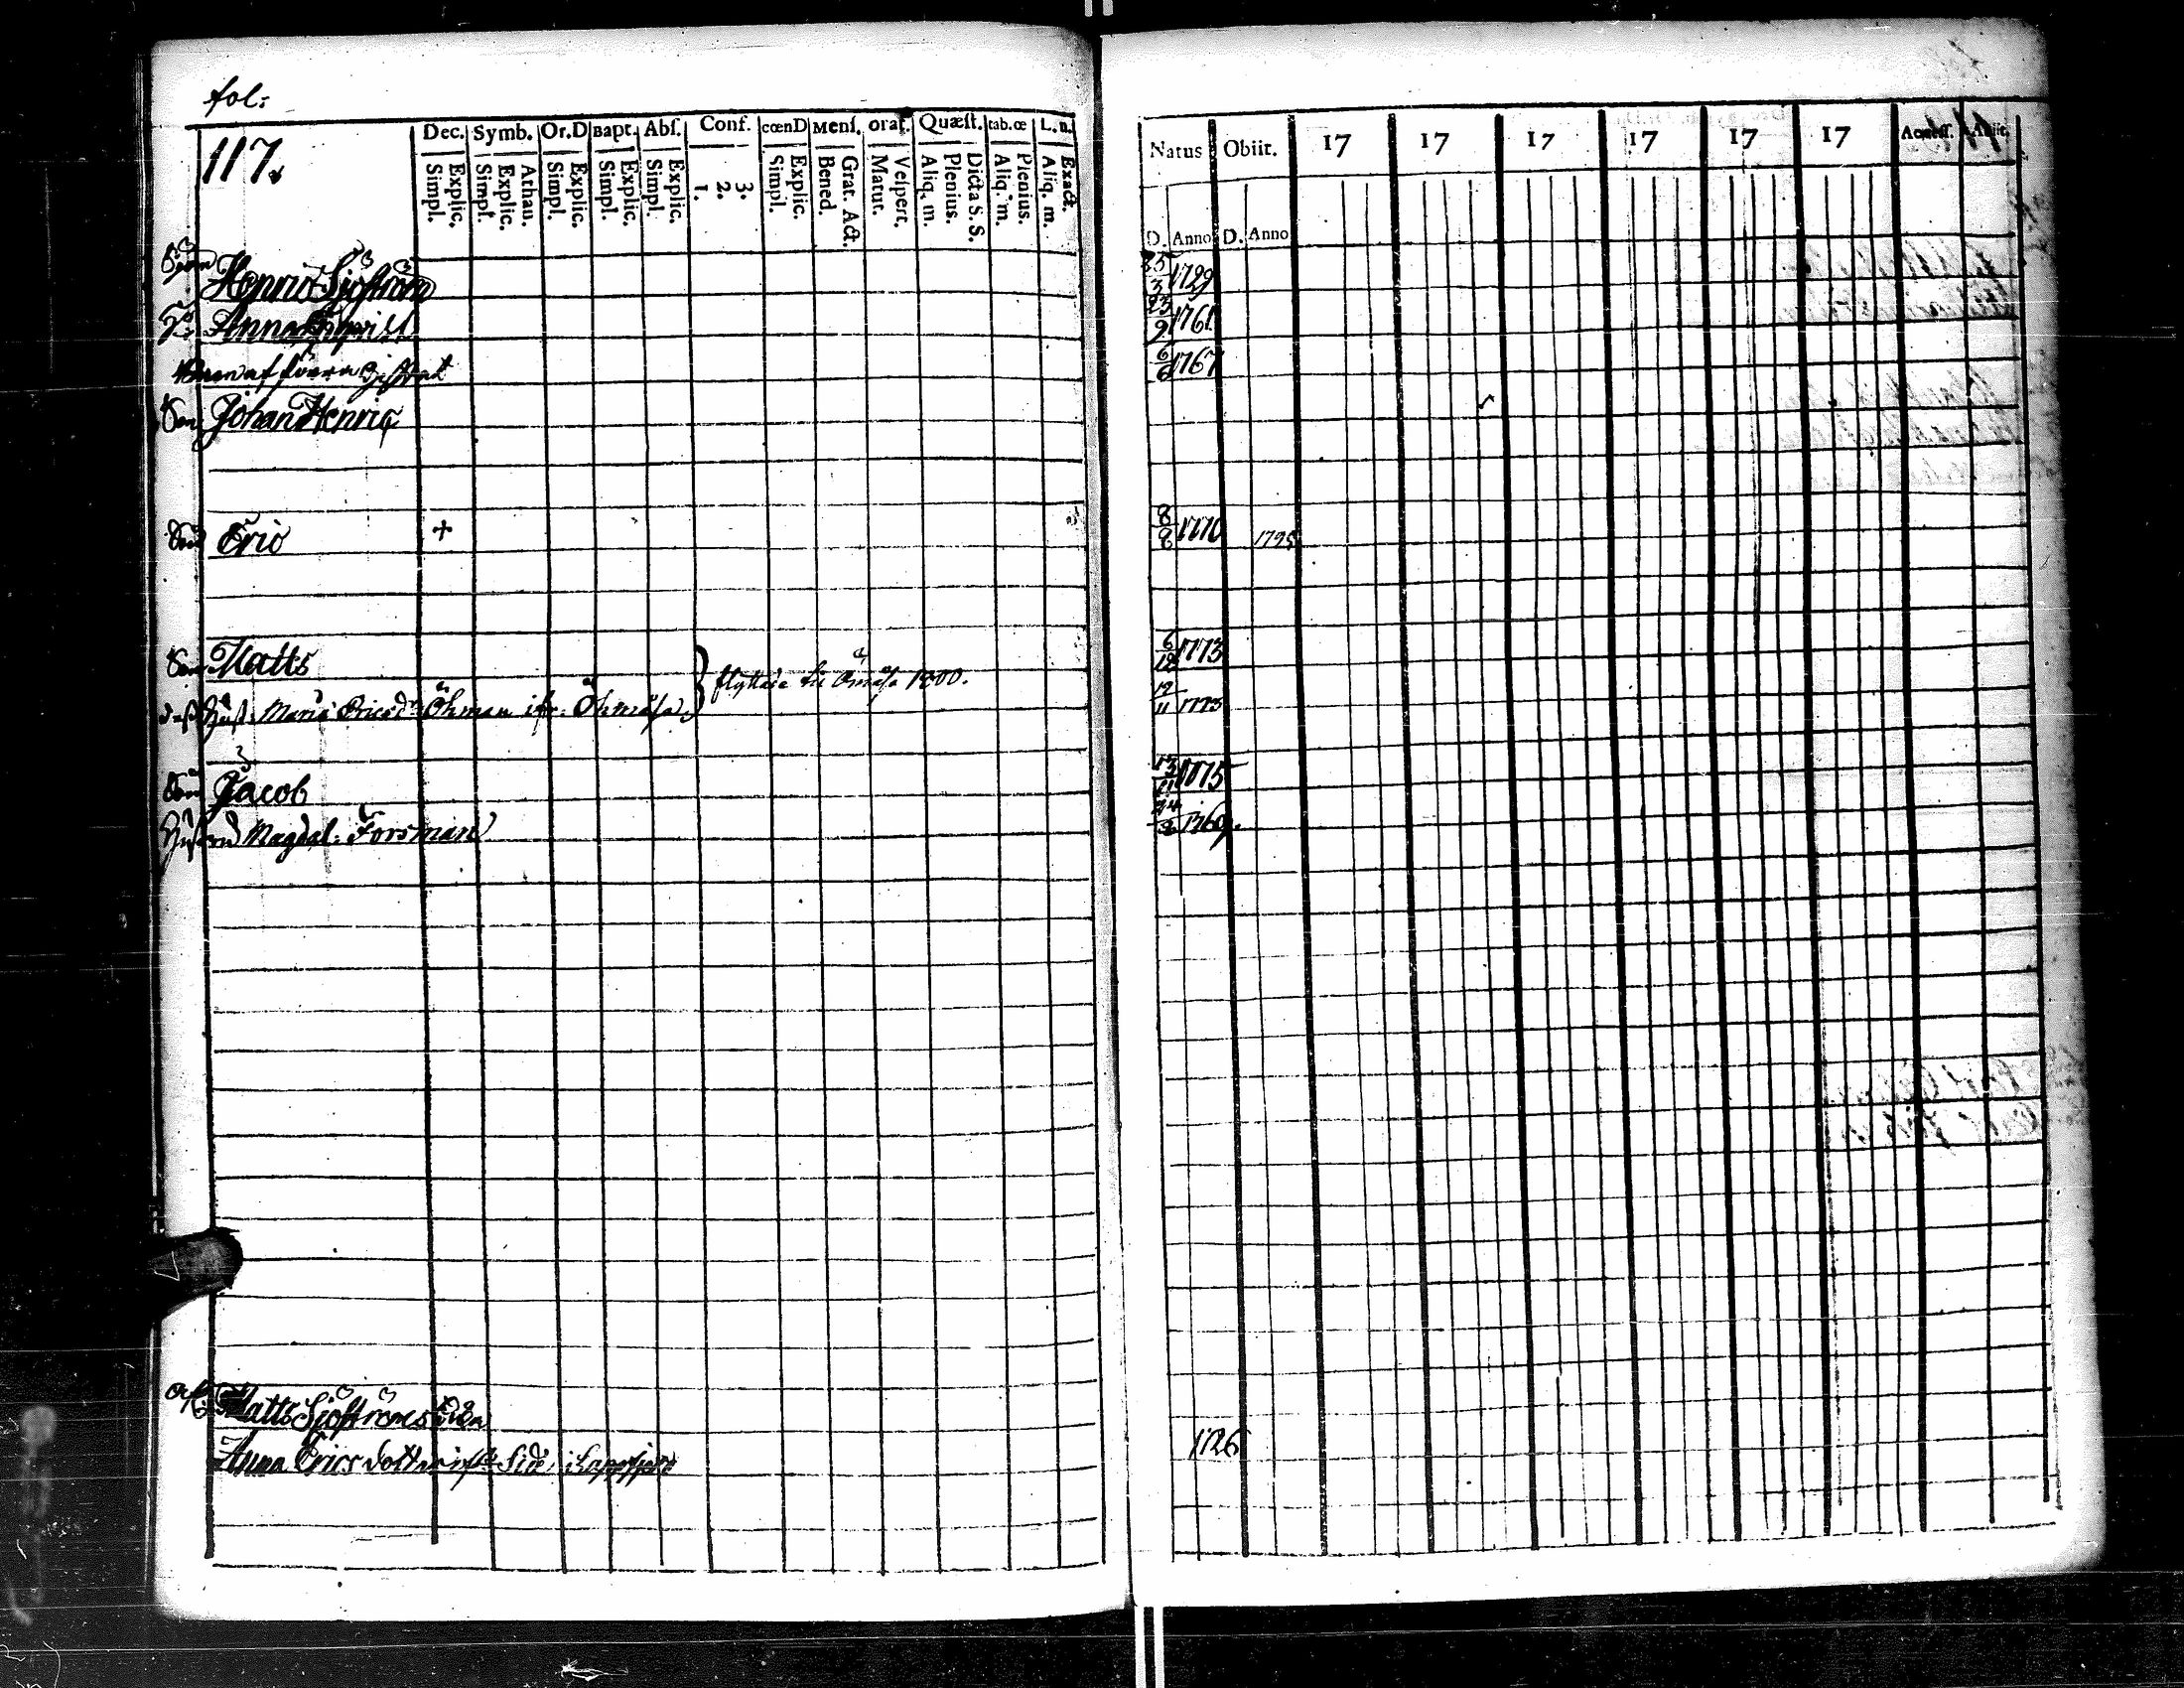 fol:
117.
Dec. Symb. Or.D Bapt. Abſ. Conf. cœnD Menſ. oraſ. Quæſt. tab.œ L. n.
Simpl. Explic. Simpl. Explic. Athan. Simpl. Explic. Simpl. Explic. Simpl. Explic. 1. 2. 3. Simpl. Explic. Bened. Grat. Act. Matut. Veſpert. Aliq. m. Plenius. Dicta S. S. Aliq. m. Plenius. Aliq. m. Exact.
Natus Obiit. 17 17 17 17 17 17 Acceſſ. Abiit.
D. Anno D. Anno
Henric Sjöſtröm 25/3 1729
H: Anna 23/9 1761
Barn af förra 1767
Son Johan Henric
Son Eric + 8/8 1770 1795
Son Matts 6/12 1773
flyttade till Ömåſa 1800.
deß Huſt. Maria Ericsd: Öhman ifr: Öhmåſa 12/11 1773
Son Jacob 13/11 1775
Huſtru Magdal. Forsman 1769.
Matts Sjöſtröms Enka
Anna Ericsdotter ifr: Side i Lappfjerd 1726